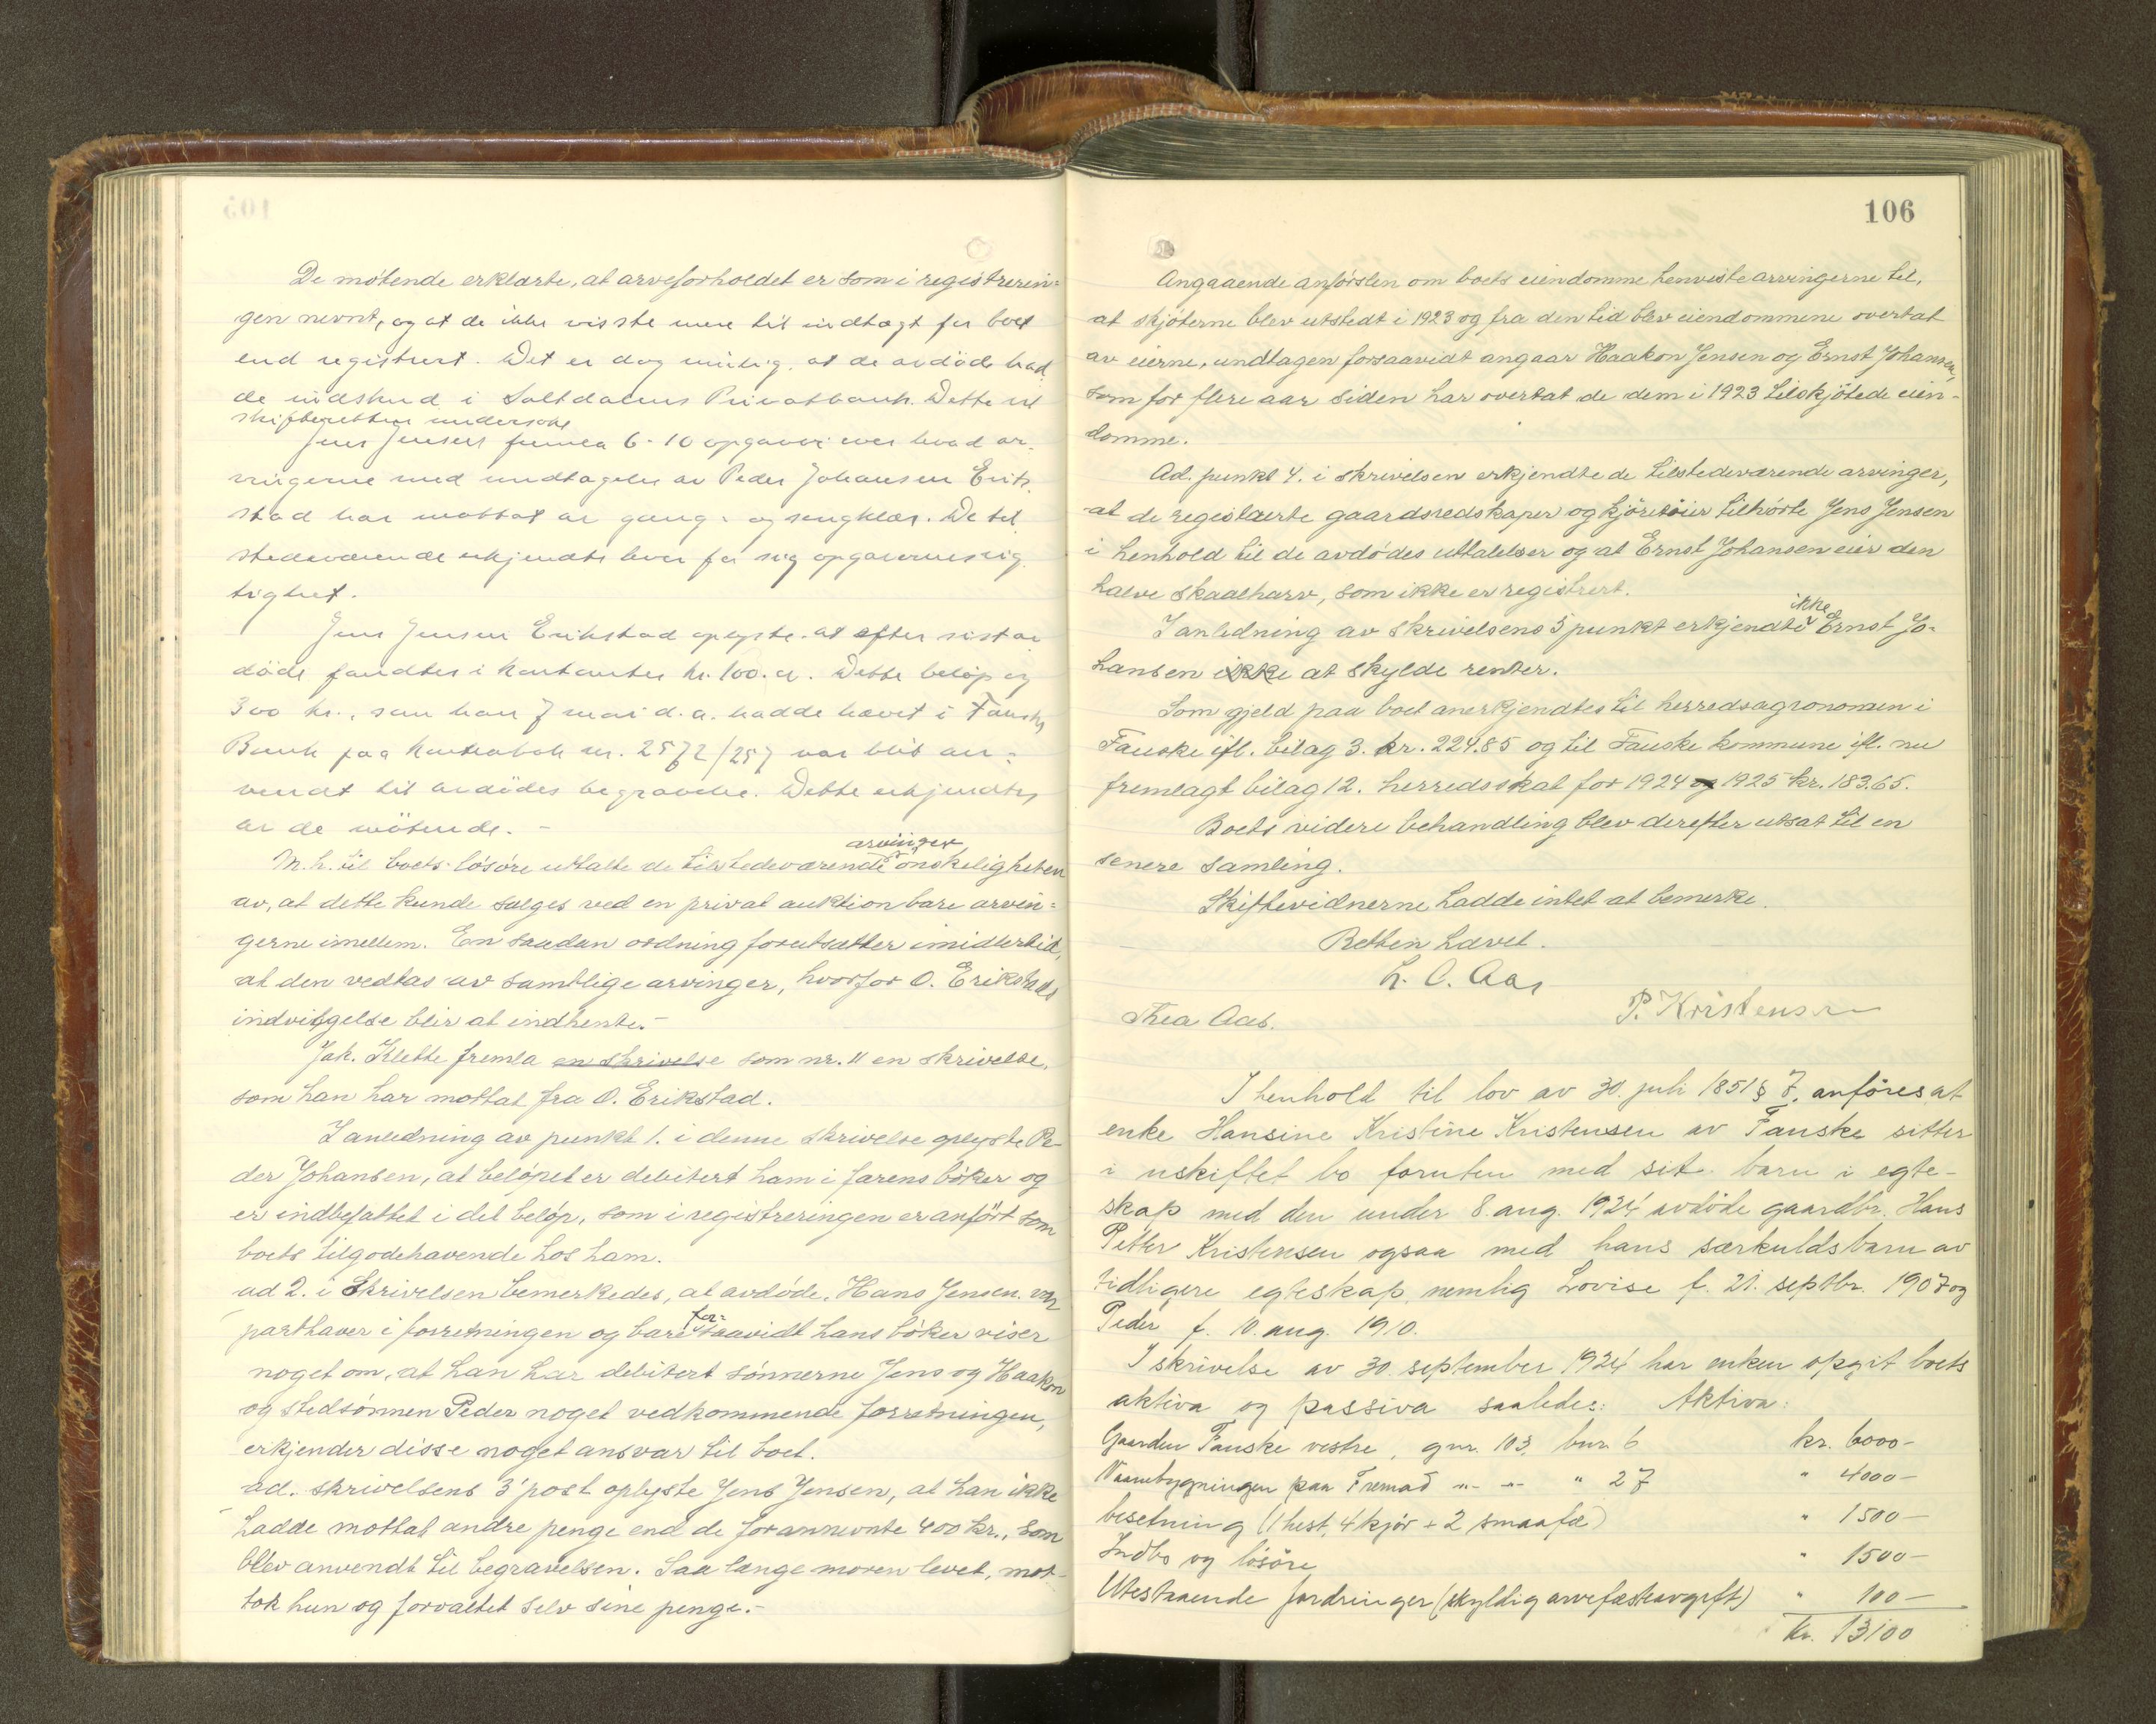 De møtende erklærte, at arveforholdet er som i registrerin=
gen nevnt, og at de ikke visste mere til indtægt for boet
end registrert. Det er dog mulig, at de avdöde had
de indskud i Saltdalens Privatbank. Dette vil
skifteretten undersøke
Jens Jensen fremla 6-10 opgaver over hvad ar-
vingerne med undtagelse av Peder Johansen Erik-
stad har mottat av gang- og sengklær. De til
stedeværende erkjendte hver for sig opgavernes rig
tighet.
Jens Jensen Erikstad oplyste at efter sist av
döde fandtes i kontanter kr. 100. Dette beløp og
300 kr., som han 7 mai d.a. hadde hævet i Fauske
Bank paa kontrabok nr. 2572/257 var blit an=
vendt til avdödes begravelse. Dette erkjendtes
av de mötende. -
arvinger
M.h. til boets løsøre uttalte de tilstedeværende ønskeligheten
av, at dette kunde sælges ved en privat auktion bare arvin=
gerne imellem. En saadan ordning forutsætter imidlertid,
at den vedtas av samtlige arvinger, hvorfor O. Erikstads
indvilgelse blir at indhente.-
Jak. Klette fremla en skrivelse som nr. 11 en skrivelse,
som han har mottat fra O. Erikstad.
I anledning av punkt 1. i denne skrivelse oplyste Pe-
der Johansen, at beløpet er debitert ham i farens bøker og
er indbefattet i det beløp, som i registreringen er anført som
boets tilgodehavende hos ham.
ad 2. i Skrivelsen bemerkedes, at avdøde, Hans Jensen. var
parthaver i forretningen og bare for=saavidt hans bøker viser
noget om, at han har debitert sønnerne Jens og Haakon
og stedsønnen Peder noget vedkommende forretningen,
erkjender disse noget ansvar til boet.
ad. skrivelsens 3' post oplyste Jens Jensen, at han ikke
hadde mottat andre penge end de forannevnte 400 kr., som
blev anvendt til begravelsen. Saa længe moren levet, mot-
tok hun og forvaltet selv sine penge.-
106
Angaaende anførslen om boets eiendomme henviste arvingerne til,
at skjøterne blev utstedt i 1923 og fra den tid blev eiendommene overtat
av eierne, undtagen forsaavidt angaar Haakon Jensen og Ernst Johansen,
som for flere aar siden har overtat de dem i 1923 tilskjøtede eien-
domme.
Ad. punkt 4. i skrivelsen erkjendte de tilstedeværende arvinger,
at de registrerte gaardsredskaper og kjøretøier tilhørte Jens Jensen
i henhold til de avdødes uttalelser og at Ernst Johansen eier den
halve skaalharv, som ikke er registrert.
ikke
I anledning av skrivelsens 5 punkt erkjendte Ernst Jo-
hansen ikke at skylde renter.
Som gjeld paa boet anerkjendtes til herredsagronomen i
Fauske ifl. bilag 3. kr. 224.85 og til Fauske kommune ifl. nu
fremlagt bilag 12. herredsskat for 1924 og 1925 kr. 183.65.
Boets videre behandling blev derefter utsat til en
senere samling.
Skiftevidnerne hadde intet at bemerke.
Retten hævet.
L. O. Aas
P. Kristensen
Thea Aas.
I henhold til lov av 30. juli 1851 § 7. anføres at
enke Hansine Kristine Kristensen av Fauske sitter
i uskiftet bo foruten med sit barn i egte-
skap med den under 8. aug. 1924 avdöde gaardbr. Hans
Petter Kristensen ogsaa med hans særkuldsbarn av
tidligere egteskap, nemlig Lovise f. 21. septbr. 1907 og
Peder f. 10. aug. 1910.
I skrivelse av 30. september 1924 har enken opgit boets
aktiva og passiva saaledes: Aktiva:
Gaarden Fauske vestre, gnr. 103, bnr. 6 kr. 6000-
Vaanebygningen paa Fremad "- -"- " 27 " 4000-
besetning (1 hest, 4 kjør + 2 smaafæ) " 1500-
Indbo og lösöre " 1500-
Utestaaende fordringer (skyldig arvefæsteavgift) " 100-
Kr. 13100